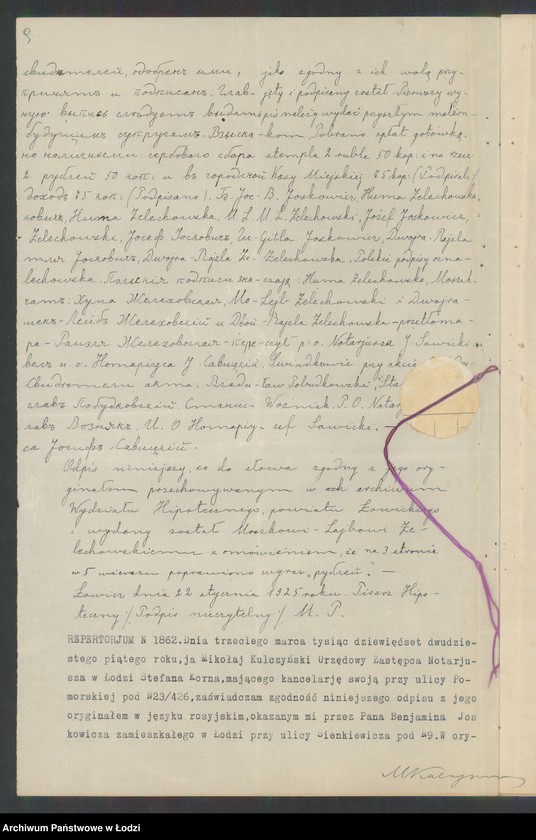 свидетелей, одобренъ ими, jako zgodny z ich wolą przy-
кринятъ и подписанъ. Глав- jęty i podpisany został. Pierwszy wy-
ную выпись слѣдуетъ выдать pis należy wydać przyszłym małżon-
будущимъ супругамъ. Взыска- kom. Pobrano opłat gotówką:
но наличными: гербового сбора stempla 2 ruble 50 kop: i na rzecz
2 рублей 50 коп: и въ городской Kasy Miejskiej 75 kop: (Podpisali)
доходъ 75 коп: (Подписано). Joskowicz, Huma Zelechowska,
ковичъ, Huma Zelechowska M. L. Zelechowski, Josef Joskowicz,
Zelechowski, Josef Joskowicz, Gitla Joskowicz, Dwojra-Rajzla
Joskowicz, Dwojra-Rajzla Że- Zelechowska. Polskie podpisy ozna-
lechowska. подписи зна- czają: Huma Zelechowska, Moszek-
чатъ: Хума Желеховская, Мо- Lejb Zelechowski i Dwojra-
шек-Лейбъ Желеховский и Двой- Rajzla Zelechowska-przetłoma-
ра- Желеховская-пере- czył p. o. Notarjusza J. Sawicki.
велъ и. о. Нотариуса J. Савицкий. Świadkowie przy akcie:
Свидетели акта: Влади- sław Pobudkowski,
славъ Побудковский. Станис- Woźniak. P. O. Notar
лавъ Вознякъ. И. О Нотариу- zef Sawicki. —
са Іосифъ Савицкий.
Odpis niniejszy, co do słowa zgodny z jego ory-
ginałem przechowywanym w archiwum
Wydziału Hipotecznego, powiatu Łowickiego
i wydany został Moszkowi-Lajbowi Że-
lechowskiemu z omówieniem, że na 3 stronie
w 5 wierszu poprawiono wyraz "rubleй". —
Łowicz dnia 22 stycznia 1925 roku. Pisarz Hipo-
teczny /. Podpis nieczytelny /. M. P.
REPERTORJUM N 1862.Dnia trzeciego marca tysiąc dziewięćset dwudzie-
stego piątego roku,ja Mikołaj Kulczyński Urzędowy Zastępca Notarju-
sza w Łodzi Stefana Korna,mającego kancelarję swoją przy ulicy Po-
morskiej pod N23/426,zaświadczam zgodność niniejszego odpisu z jego
oryginałem w języku rosyjskim,okazanym mi przez Pana Benjamina Jos
kowicza zamieszkałego w Łodzi przy ulicy Sienkiewicza pod N9.W ory-
Archiwum Państwowe w Łodzi